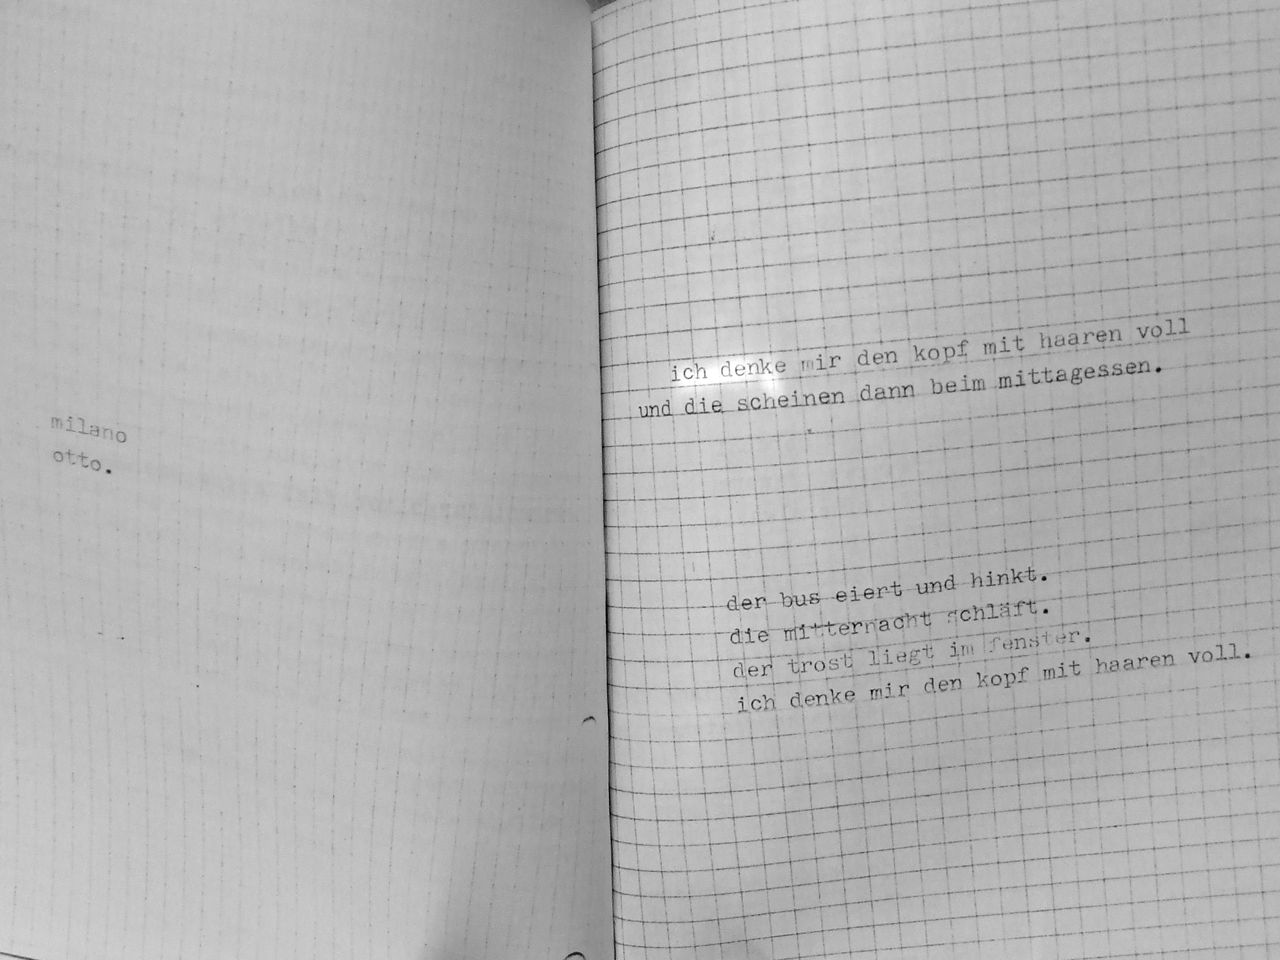 milano
otto.
ich denke mir den kopf mit haaren voll
und die scheinen dann beim mittagessen.
der bus eiert und hinkt.
die mitternacht schläft.
der trost liegt im fenster.
ich denke mir den kopf mit haaren voll.